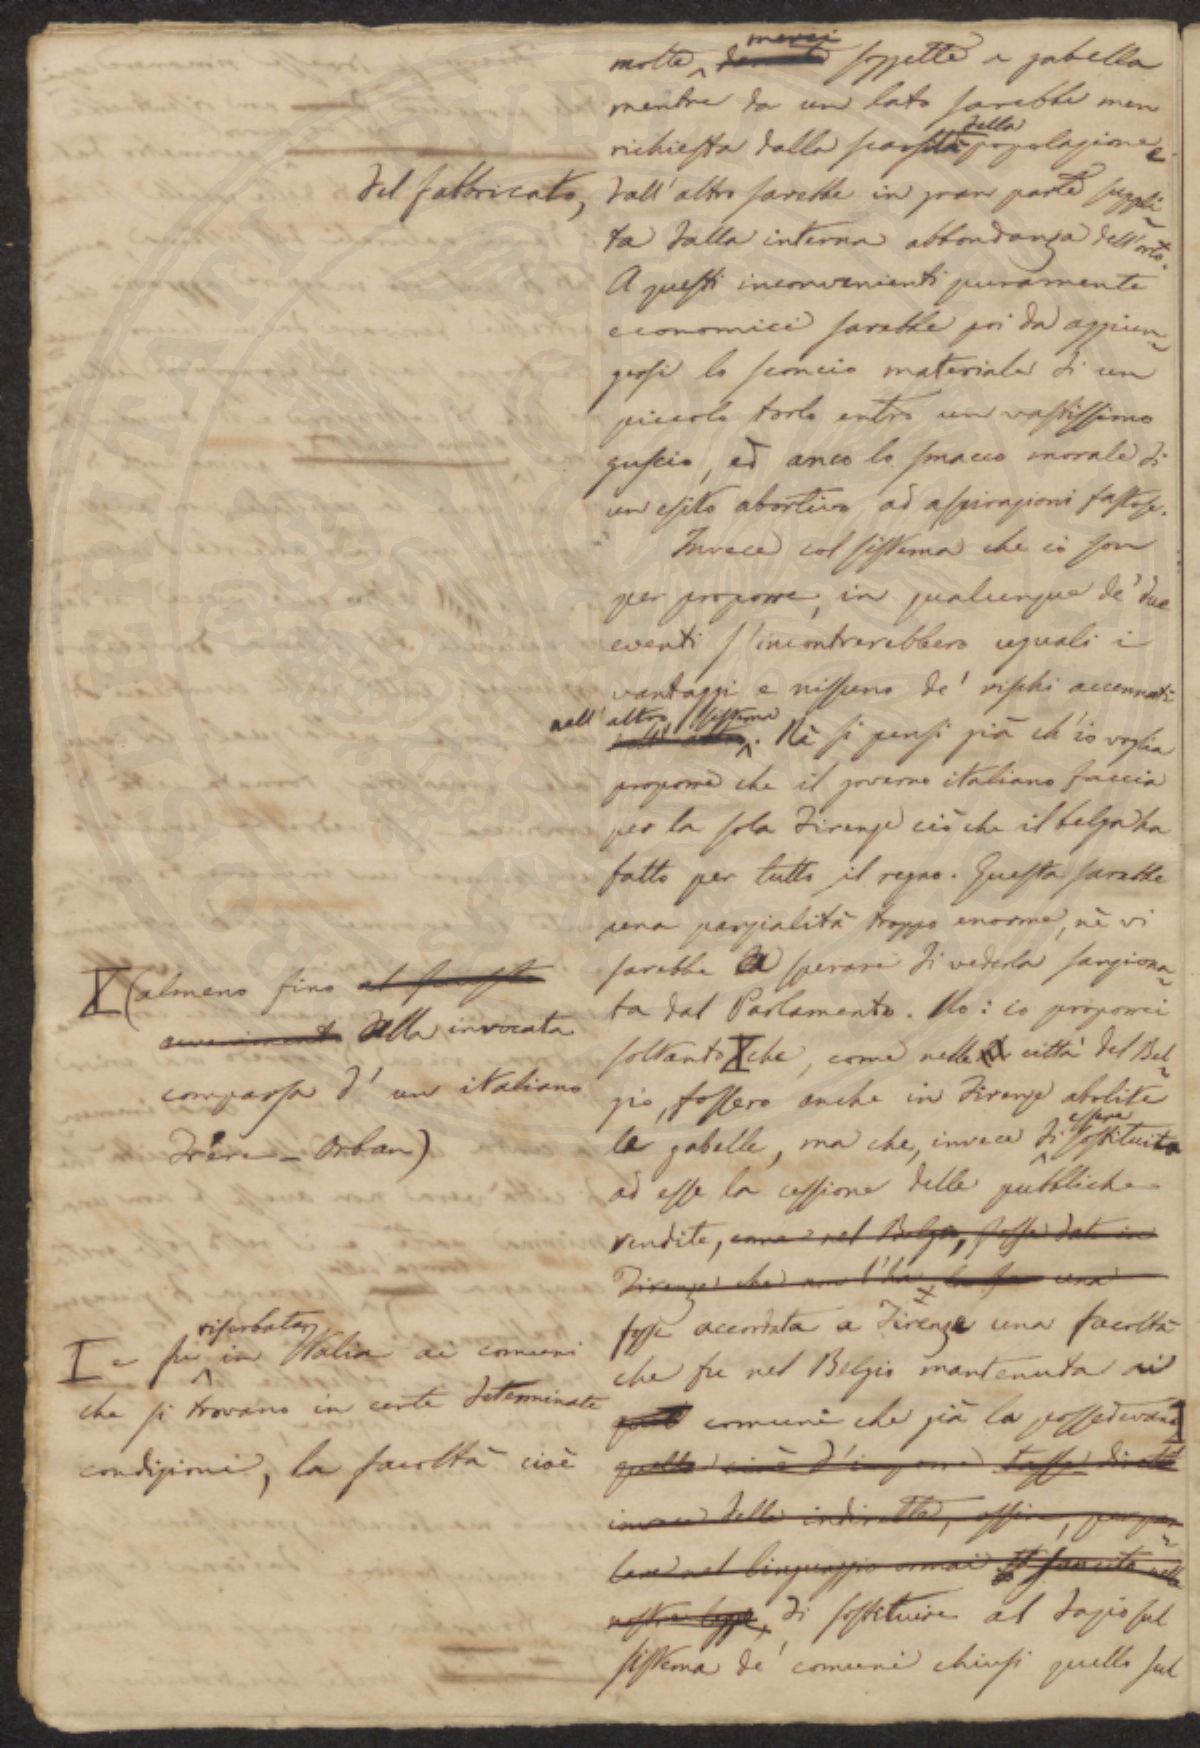 merci
molte, derrate soggette a gabella
mentre da un lato sarebbe men
della
richiesta dalla scarsità popolazione e
del fabbricato,
dall'altro sarebbe in gran parte suppli-
ta dalla interna abbondanza dell'orto.
A questi inconvenienti puramente
economici sarebbe poi da aggiun-
gersi lo sconcio materiale di un
piccolo torlo entro un vastissimo
guscio, ed anco lo smacco morale di
un esito abortivo ad aspirazioni fastose.
Invece col sistema che io son
per proporre, in qualunque de' due
eventi s'incontrerebbero uguali i
vantaggi e nissuno de' rischi accennati
nell' altro sistema
. Nè si pensi già ch'io voglia
proporre che il governo italiano faccia
per la sola Firenze ciò che il belga ha
fatto per tutto il regno. Questa sarebbe
una parzialità troppo enorme, nè vi
sarebbe a sperare di vederla sanziona-
ta dal Parlamento. No: io proporrei
soltanto X che, come nelle città del Bel-
gio, fossero anche in Firenze abolite
le gabelle, ma che, invece di essere sostituita
ad esse la cessione delle pubbliche
vendite, come nel Belgio, fosse data in
Firenze che non l'ha una
fosse accordata a Firenze una facoltà
che fu nel Belgio mantenuta ai
comuni che già la possedevano I
quella cioè d'imporre tasse dirette
invece delle indirette, ossia, per par-
lare nel linguaggio omai sancito nelle
nostre leggi, di sostituire al dazio sul
sistema de' comuni chiusi quello sul
X (almeno fino
avvenimento alla invocata
comparsa d' un italiano
Frère-Orban)
I e fu riserbata in Italia ai comuni
che si trovano in certe determinate
condizioni, la facoltà cioè